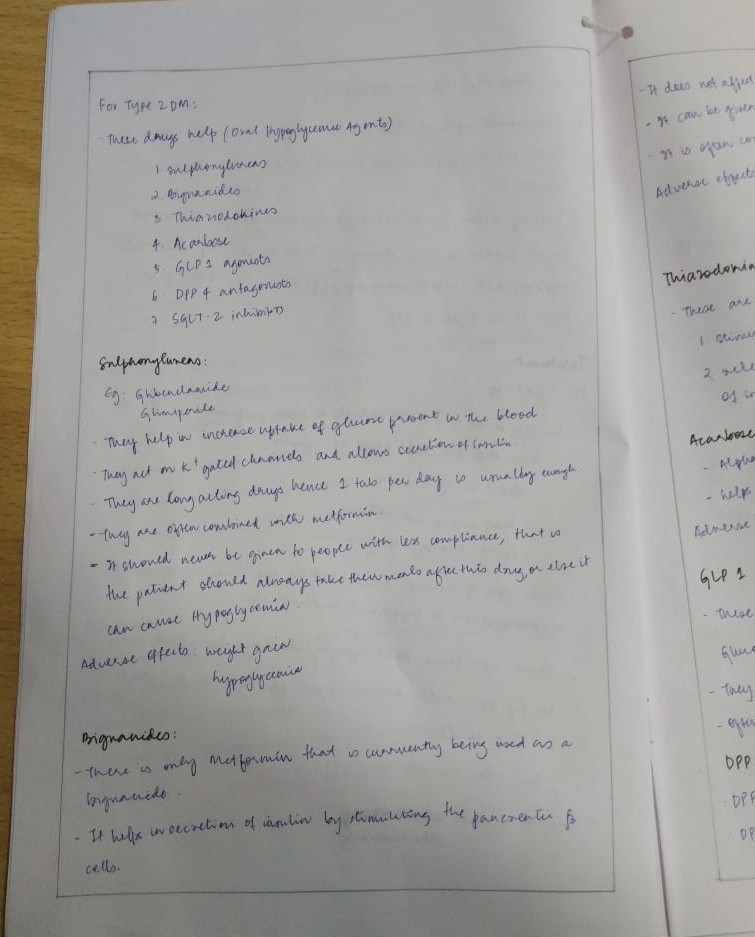 For Type 2 DM:
- These drugs help (Oral Hypoglycemic Agents)
1 Sulphonylureas
2. Biguanides
3 Thiaziodokines
4. Acarbose
5. GLP 1 agonists
6 DPP 4 antagonists
7. SGLT-2 inhibitors
Sulphonylureas:
Eg: Glibenclamide
Glimiperide
- They help in increase uptake of glucose present in the blood
- They act on K+ gated channels and allows secretion of insulin
- They are long acting drugs hence 1 tab per day is usually enough
- They are often combined with metformin
- It should never be given to people with less compliance, that is
the patient should always take their meals after this drug, or else it
can cause Hypoglycemia.
Adverse effects: weight gain
hypoglycemia
Biguanides:
- There is only Metformin that is currently being used as a
biguanide.
- It helps in secretion of insulin by stimulating the pancreatic β
cells.
- It does not affect
- It can be given
- It is often
Adverse effects
- These are
1
2
of
Acarbose
-
- helps
Adverse
GLP 1
- These
- They
-
DPP
- DPP